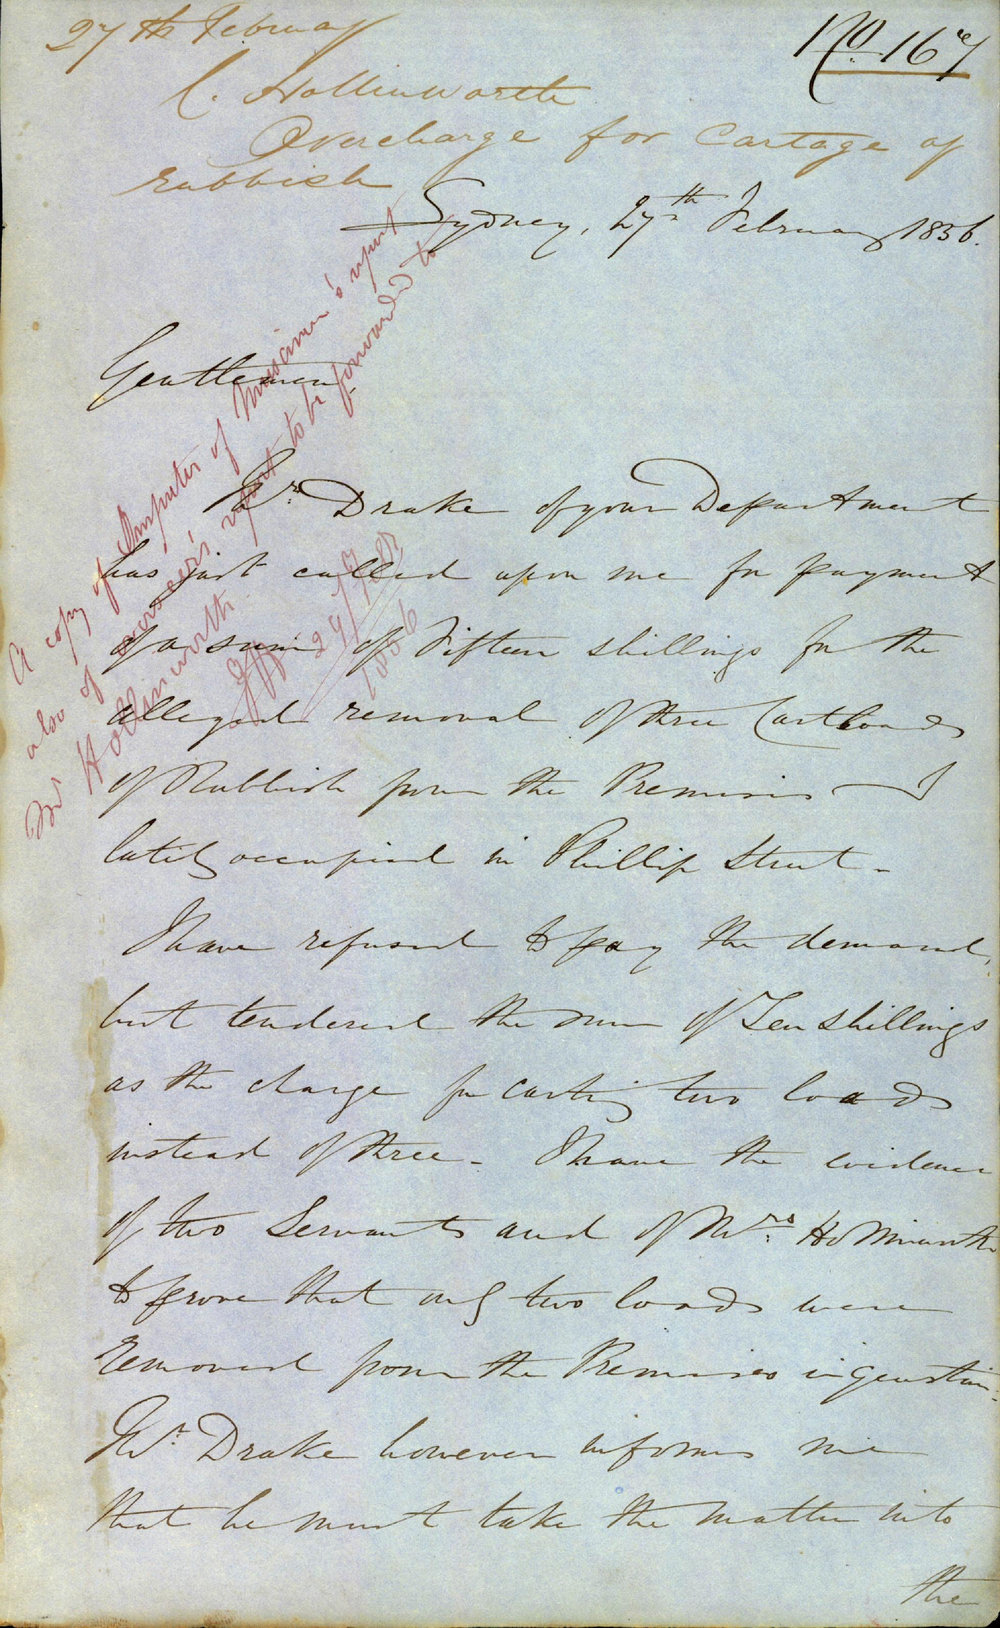 27th February
No. 167
C. Hollinworth
Overcharge for Cartage of
rubbish
Sydney, 27th February 1856.
Gentlemen,
Mr. Drake of your Department
has just called upon me for payment
of a sum of Fifteen shillings for the
alleged removal of three Cartloads
of Rubbish from the Premises I
lately occupied in Phillip Street -
I have refused to pay the demand,
but tendered the sum of Ten shillings
as the charge for carting two loads
instead of three - I have the evidence
of two Servants and of Mrs. Hollinworth
to prove that only two loads were
removed from the Premises in question.
Mr. Drake however informs me
that he must take the matter into
the
A copy of Inspector of Nuisances's report
also of report to be forwarded to
Mr Hollinworth
1856